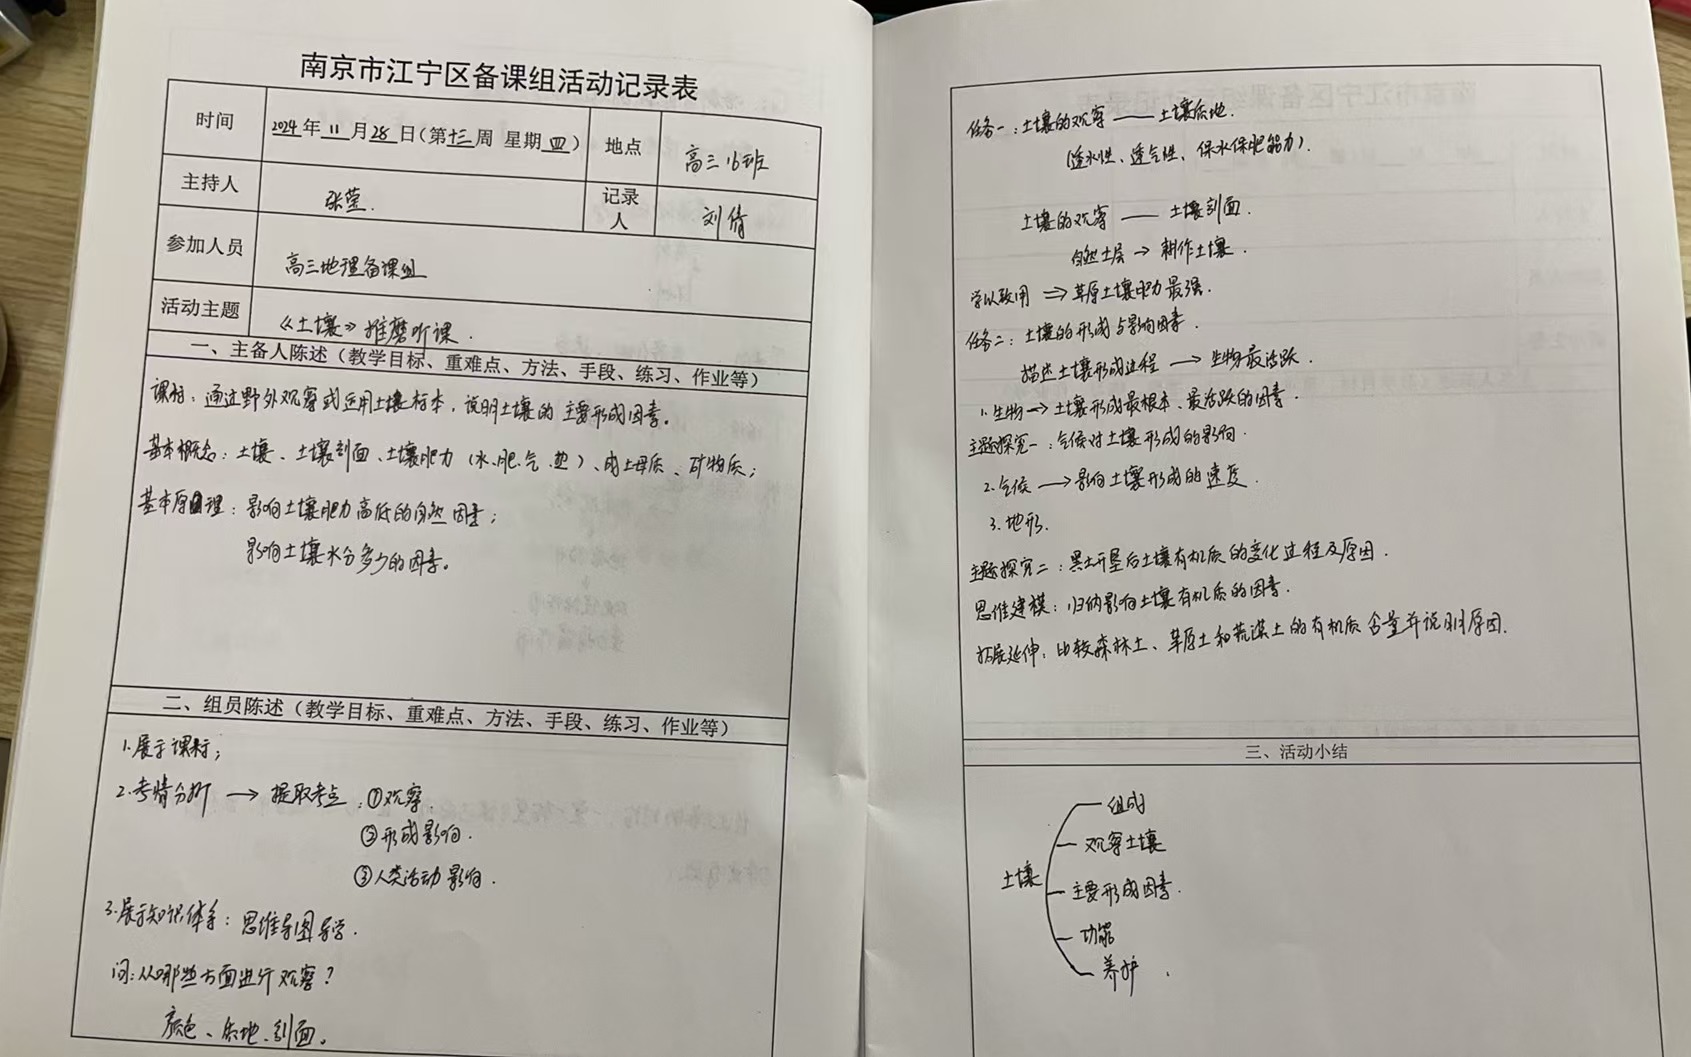 南京市江宁区备课组活动记录表
时间 2024年11月28日(第十三周 星期四) 地点 高三16班
主持人 张莹. 记录人 刘倩
参加人员 高三地理备课组
活动主题 《土壤》推磨听课.
一、主备人陈述（教学目标、重难点、方法、手段、练习、作业等）
课标：通过野外观察或运用土壤标本，说明土壤的主要形成因素。
基本概念：土壤、土壤剖面、土壤肥力（水、肥、气、热）、成土母质、矿物质；
基本原理：影响土壤肥力高低的自然因素；
影响土壤水分多少的因素。
二、组员陈述（教学目标、重难点、方法、手段、练习、作业等）
1.展示课标；
2.考情分析 → 提取考点：①观察.
②形成影响.
③人类活动影响.
3.展示知识体系：思维导图导学.
问：从哪些方面进行观察？
颜色、质地、剖面。
任务一：土壤的观察 —— 土壤质地.
(透水性、透气性、保水保肥能力).
土壤的观察 —— 土壤剖面.
自然土层 → 耕作土壤.
学以致用 ⇒ 草原土壤肥力最强.
任务二：土壤的形成与影响因素.
描述土壤形成过程 → 生物最活跃.
1.生物 → 土壤形成最根本、最活跃的因素.
主题探究一：气候对土壤形成的影响.
2.气候 → 影响土壤形成的速度.
3.地形.
主题探究二：黑土开垦后土壤有机质的变化过程及原因.
思维建模：归纳影响土壤有机质的因素.
拓展延伸：比较森林土、草原土和荒漠土的有机质含量并说明原因.
三、活动小结
组成
观察土壤
土壤 主要形成因素.
功能
养护.